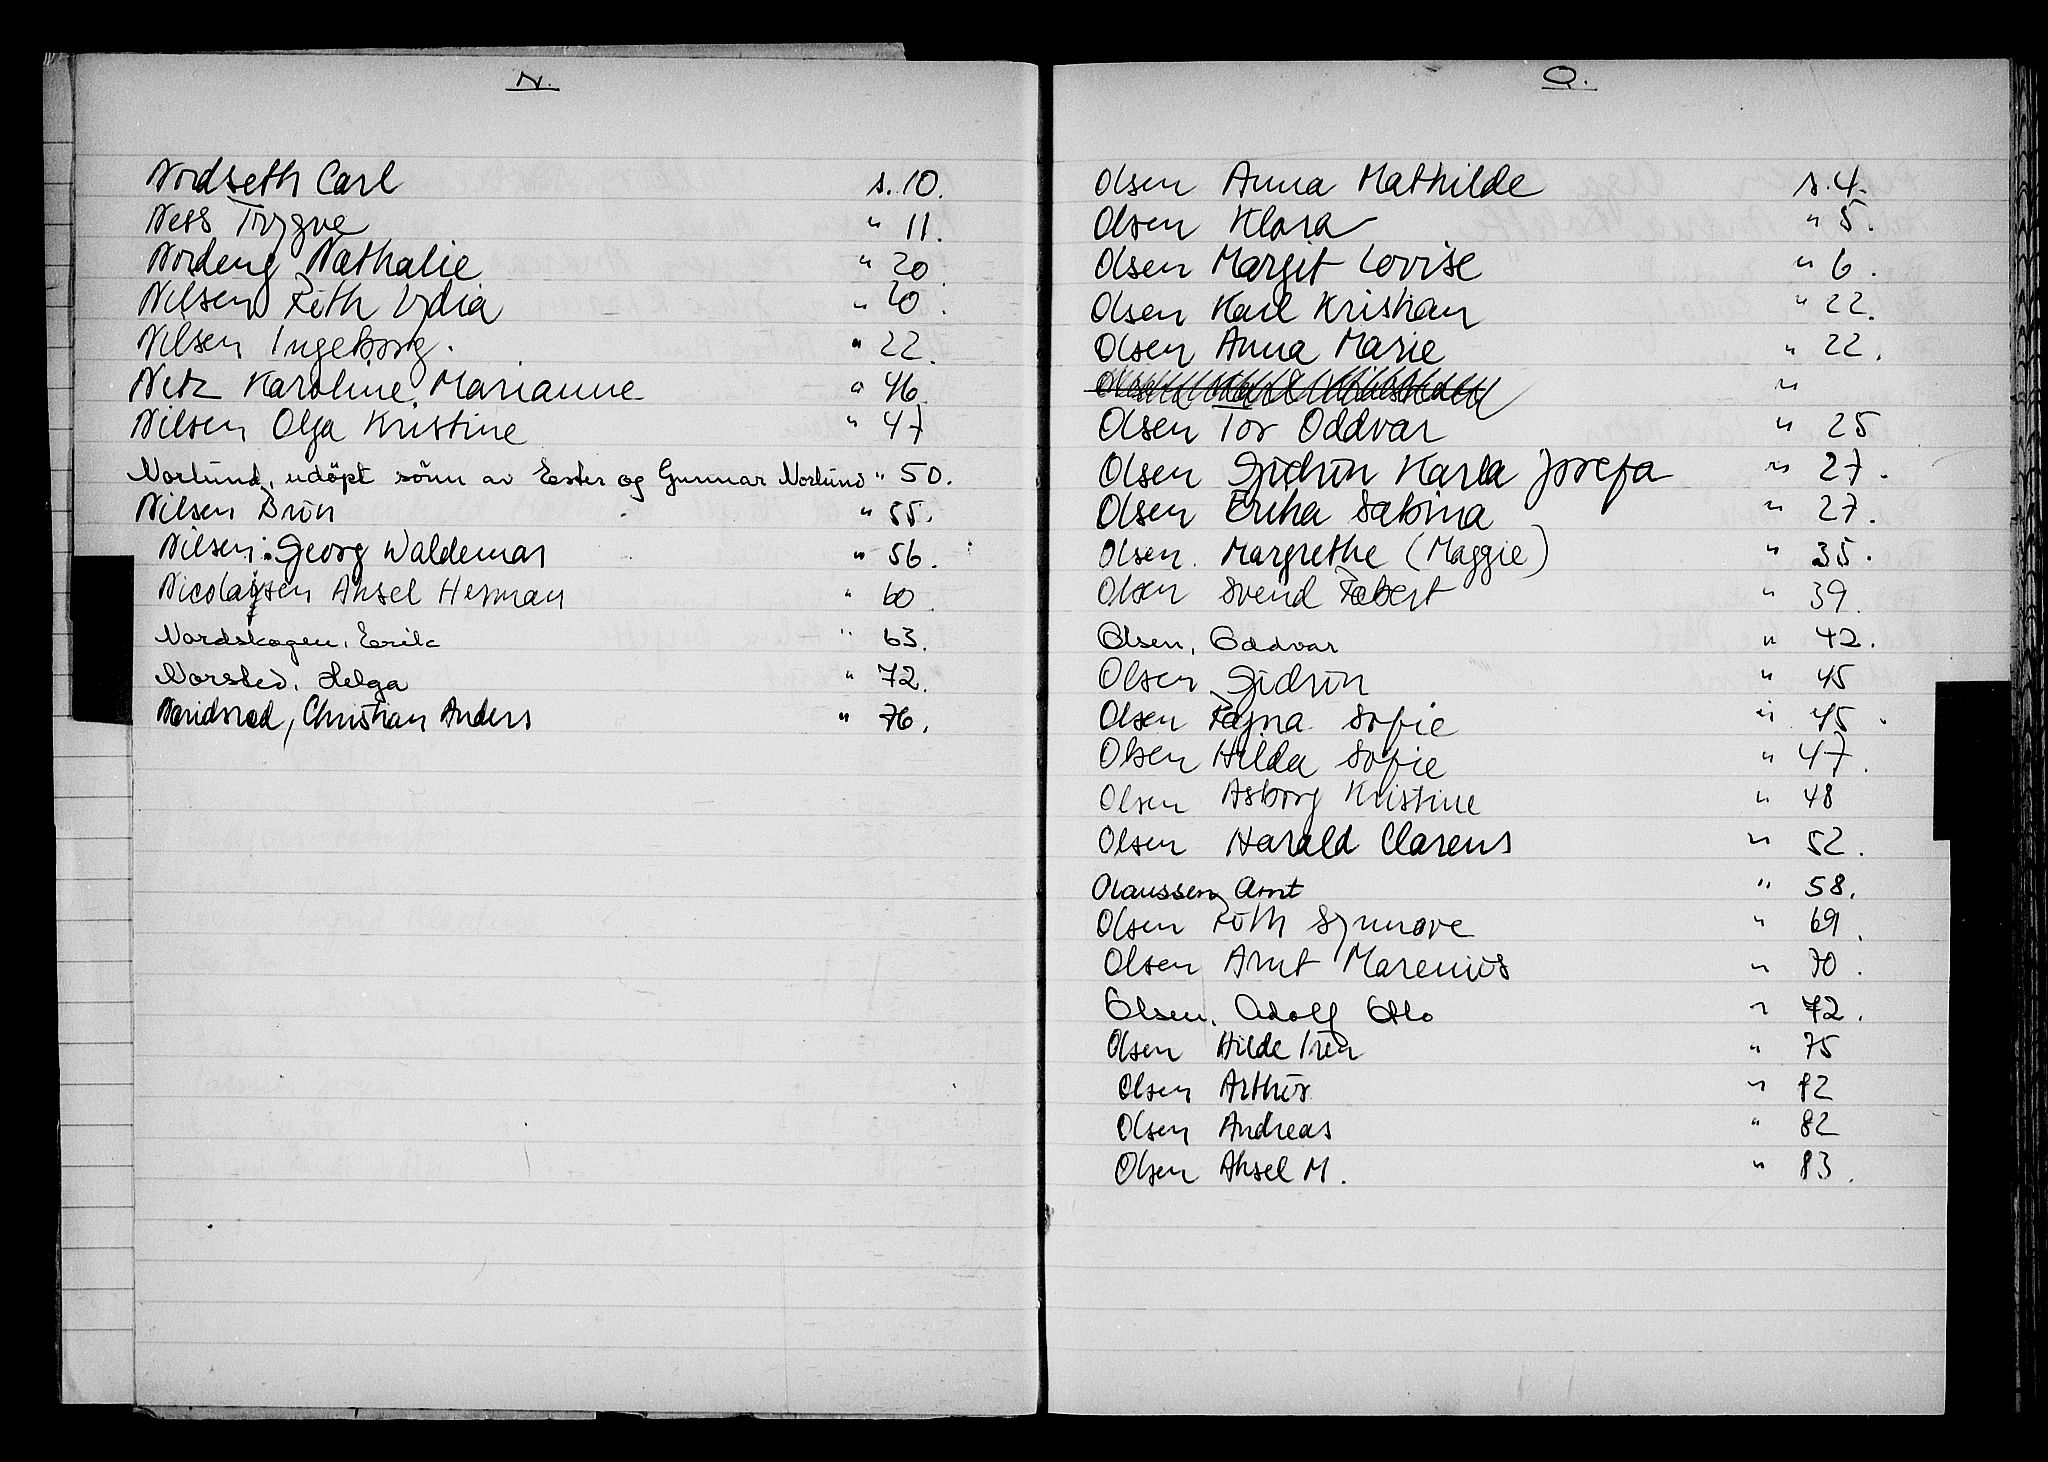 N.
Nordseth Carl s. 10.
Ness Trygve " 11.
Nordeng Nathalie " 20
Nilsen Rūth Lydia " 20.
Nilsen Ingeborg. " 22.
Netz Karoline Marianne " 46.
Nilsen Olga Kristine " 47
Norlund, udöpt sönn av Ester og Gunnar Norlund " 50.
Nilsen Brūn " 55.
Nilsen Georg Waldemar " 56.
Nicolaysen Aksel Herman " 60.
Nordskogen, Erik " 63.
Norsted, Helga " 72.
Christian Anders " 76.
O.
Olsen Anna Mathilde s. 4.
Olsen Klara " 5.
Olsen Margit Lovise " 6.
Olsen Karl Kristian " 22.
Olsen Anna Marie " 22.
Olsen "
Olsen Tor Oddvar " 25
Olsen Gūdrūn Karla Josefa " 27.
Olsen Erika Sabina " 27.
Olsen Margrethe (Maggie) " 35.
Olsen Svend " 39.
Olsen, Oddvar " 42.
Olsen Gūdrūn " 45
Olsen Ragna Sofie " 45.
Olsen Hilda Sofie " 47.
Olsen Asborg Kristine " 48
Olsen Harald Clarens " 52.
Olaussen Arnt " 58.
Olsen Rūth Synnøve " 69.
Olsen Arnt Mareniūs " 70.
Olsen, Adolf Otto " 72.
Olsen Hilde Iren " 75
Olsen Arthūr " 82
Olsen Andreas " 82
Olsen Aksel M. " 83.